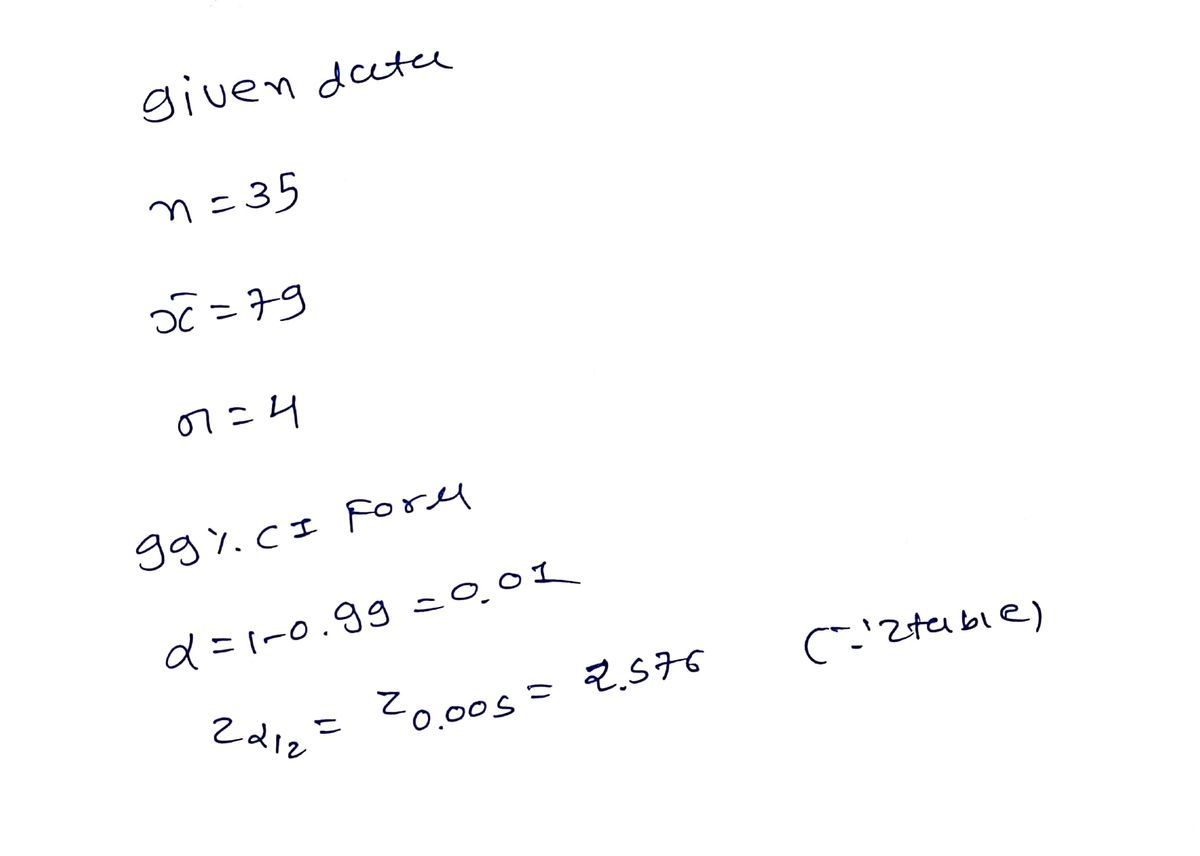 given data
n = 35
x̄ = 79
σ = 4
99% CI For μ
α = 1-0.99 = 0.01
Zα/2 = Z0.005 = 2.576 (∵ Z table)